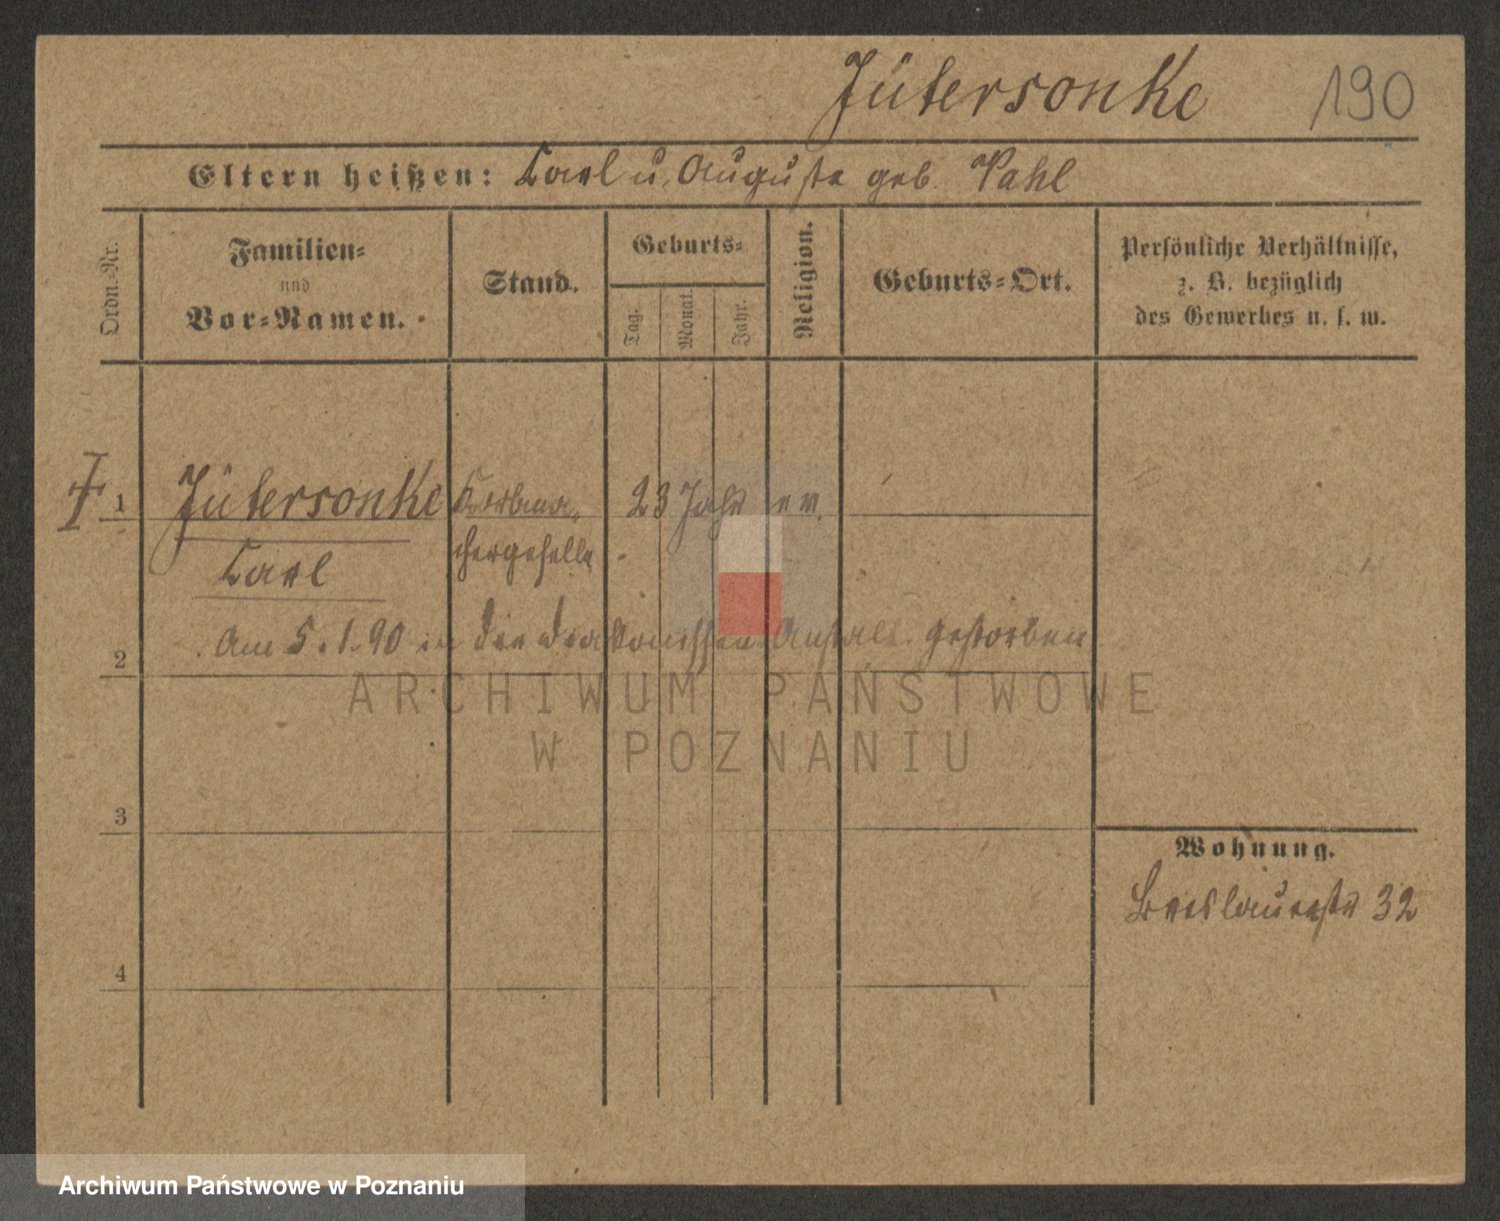 Jütersonke 190
Eltern heißen: Carl u. Auguste geb. Pahl
Ordn.-Nr.
Familien-
und
Vor-Namen.
Stand.
Geburts-
Tag.
Monat.
Jahr.
Religion.
Geburts-Ort.
Persönliche Verhältnisse,
z. B. bezüglich
des Gewerbes u. s. w.
1 Jütersonke Korbma- 23 Jahr ev.
Carl chergeselle
Am 5.1.90 in der Diakonissen Anstalt gestorben
2
ARCHIWUM PAŃSTWOWE
W POZNANIU
3
Wohnung.
Breslauerstr 32
4
Archiwum Państwowe w Poznaniu